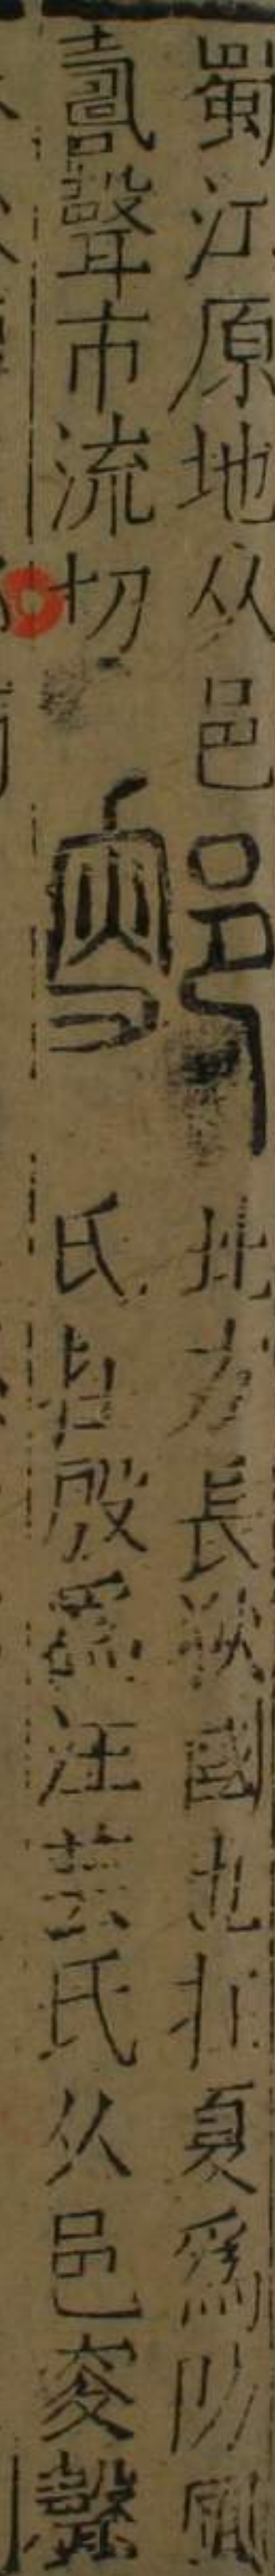 蜀江原地从邑
壽聲市流切
鄋
北方長狄國也在夏爲防風
氏在殷爲汪芒氏从邑叜聲